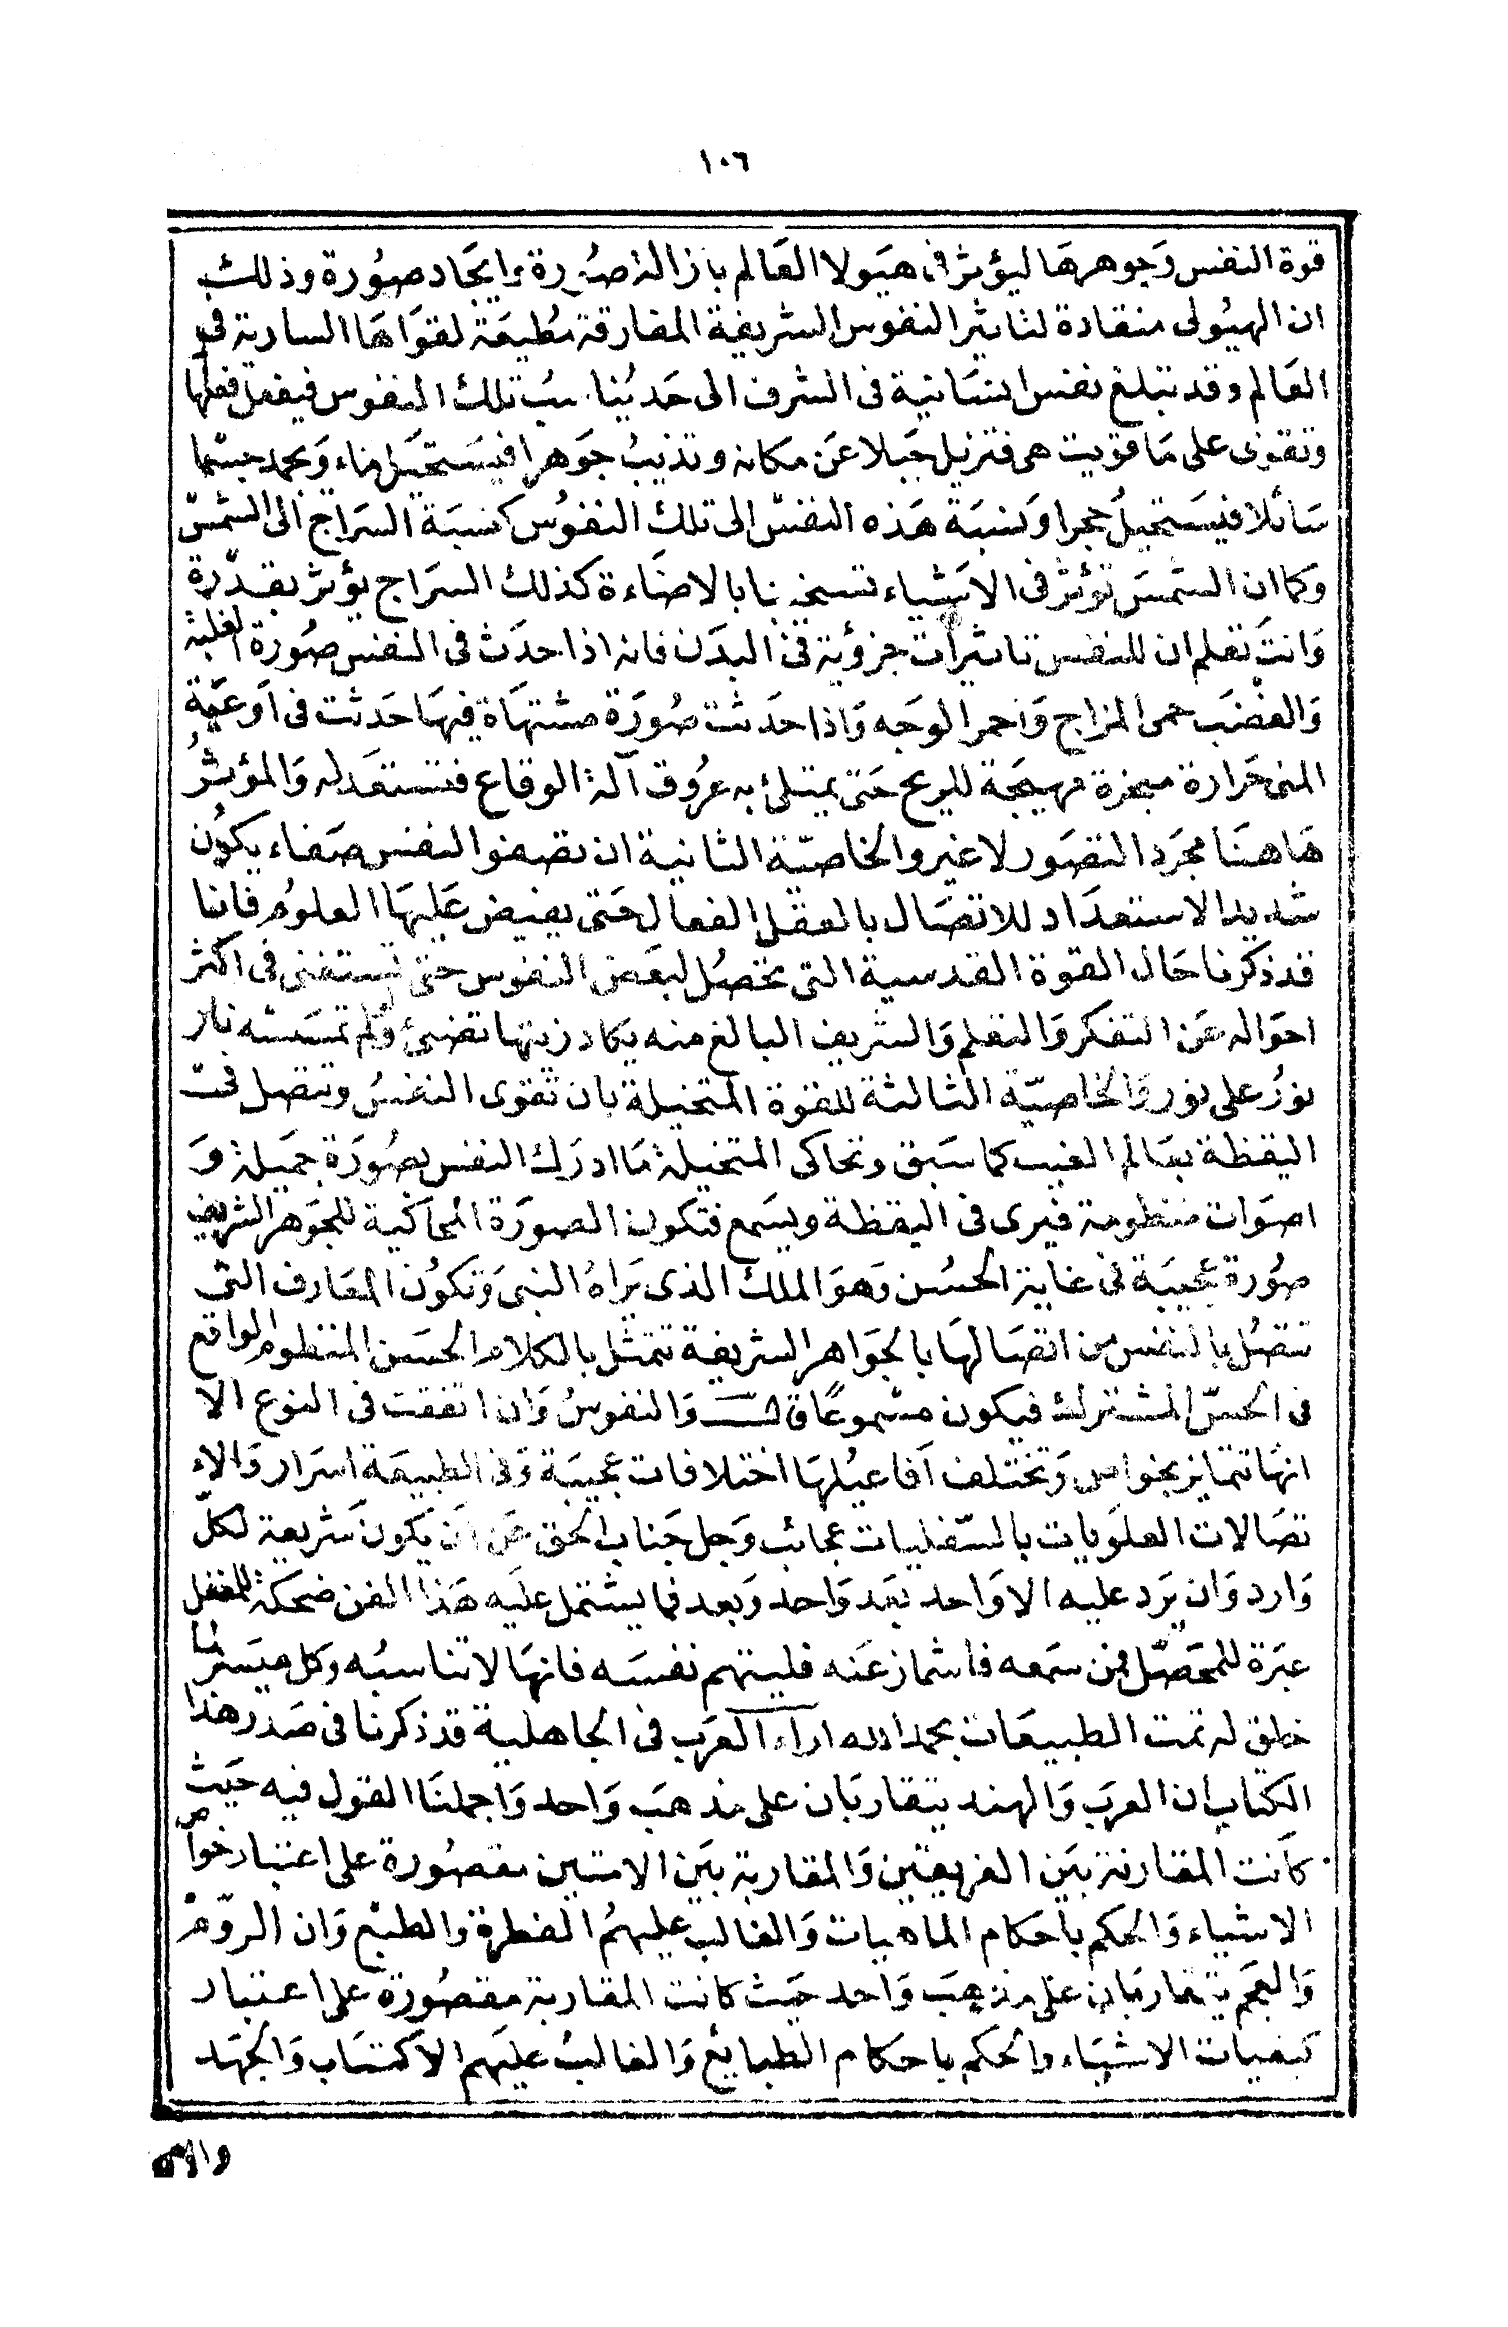 ١٠٦
قوة النفس وَجوهرهَا ليؤثر فى هيَولا العَالم بازالة صُورة وايجَاد صُورة وذلك
ان الهيُولى منقادة لتاثير النفوس الشريفة المفارقة مُطيعَة لقوَاهَا السارية فى
العَالم وقد تبلغ نفس انسَانية فى الشرف الى حَد يُناسبُ تلك النفوس فيفعل فعلها
وتقوى على مَا قويت هى فتزيل جَبلا عَن مكانه وتذيبُ جَوهرا فيسَتحيل مَاء وَيجمد جسمًا
سَائلا فيسَتحيلُ حجرا وَنسبَة هَذه النفسّ الى تلك النفوُس كنسبَة السرَاج الى الشمسّ
وكما ان الشمسَ تؤثر فى الاشيَاء تسخينا بالاضَاءة كذلك السرَاج يؤثر بقدره
وَانتَ تعَلم ان للنفس تاثيرات جزؤية فى البدَن فانه اذا حدَث فى النفس صُورة الغلبة
وَالغضَب حمى المزاج وَاحمر الوجَه وَاذا حدَثت صُورَة مشتهَاة فيهَا حَدثت فى اَوعيَة
المنى حَرارة مبخرة مهيجَة للريح حَتى يمتلئ به عرُوق آلة الوقاع فتستعَد له وَالمؤثرُ
هَاهنَا مجرَد التصَور لا غير والخاصيّة الثانية ان تصفوا النفس صَفاء يكوُن
شديد الاستعدَاد للاتصَال بالعقل الفعال حَتى يفيض عَليهَا العلوُم فاننا
قد ذكرنا حَال القوة القدسية التى تحصُل لبعَض النفوس حتى تستغنى فى اكثر
احوَاله عَن التفكر وَالتعلم وَالشريف البالغ منه يكاد زيتها تضئ وَلم تمسَسْه نار
نورُ على نور وَالخاصيّة الثالثة للقوة المتخيلة بان تقوى النفسُ وتتصل فى
اليقظة بعَالم الغيب كما سَبق وتحاكى المتخيلة مَا ادرَك النفس بصُورَة جمَيلة وَ
اصوَات منظومة فيرى فى اليقظة ويسَمع فتكون الصورَة المحاكية للجَوهر الشريف
صُورة عجيبَة فى غاية الحسُن وَهوَ الملك الذى يَراهُ النبى وَتكوُن المعَارف التى
تتصلُ بالنفس من اتصَالهَا بالجوَاهر الشريفة تتمثل بالكلام الحسَن المنظوم الواقع
فى الحسّ المشترك فيكون مسْموعًا قال وَالنفوسُ وَان اتفقت فى النوع الا
انهَا تتمايز بخواص وَتختلف اَفاعيُلهَا اختلافات عجيبَة وَفى الطبيعَة اسَرار وَالاء
تصَالات العلوَيات بالسّفليات عجائب وَجل جَناب الحق عَن اَن يَكونَ شَريعة لكلّ
وَارد وَان يرَد عليه الا وَاحد بعَد وَاحد وَبعد فما يشتمل علَيه هَذا الفن ضحَكة للمغفل
عبَرة للمحَصّل فمن سَمعه فاشماز عَنه فليتهم نفسَه فانهَا لا تناسبُه وَكل ميسَر لما
خلق له تمت الطبيعَات بحمد الله اراء العَرب فى الجاهلية قد ذكرنا فى صَدر هذا
الكتاب ان العرَب وَالهند يتقاربَان على مذهَب وَاحد وَاجملنَا القول فيه حَيث
كاَنت المقارنة بَين الفريقتين وَالمقاربة بَين الامتين مقصُورة على اعتبار خوَاص
الاشياء وَالحكم باَحكام الماهيات وَالغالب علَيهمُ الفطرة والطبْع وَان الرّومَ
وَالعجَم يتقاربَان على مذهبَ وَاحد حَيث كانت المقاربة مقصُورة على اعتبار
كيفيات الاشيَاء والحكم باحكام الطبايَع وَالغالبُ علَيهم الاكتسَاب وَالجهَد